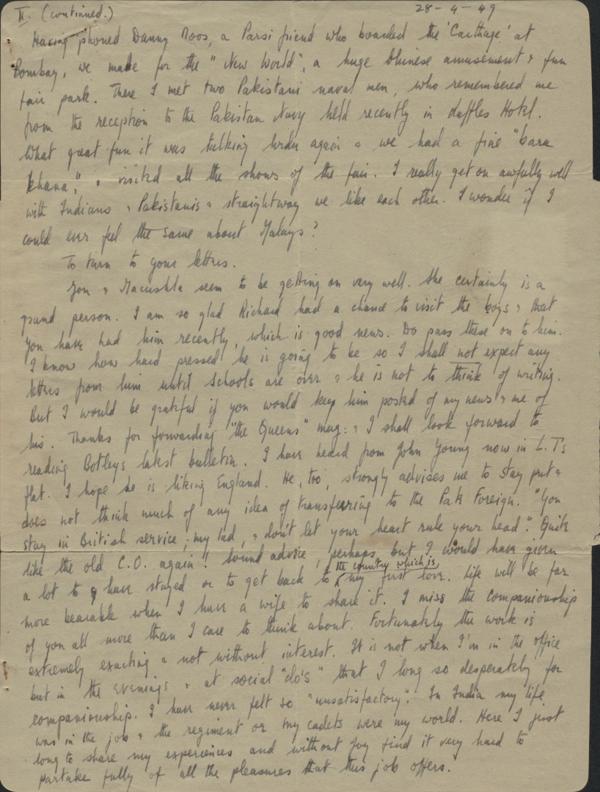 II. (continued.) 28-4-49
Having phoned Danny Noos, a Parsi friend who boarded the 'Carthage' at
Bombay, we made for the "New World", a huge Chinese amusement & fun
fair park. There I met two Pakistani naval men, who remembered me
from the reception to the Pakistan Navy held recently in Raffles Hotel.
What great fun it was talking Urdu again & we had a fine "bara
khana", & visited all the shows of the fair. I really get on awfully well
with Indians & Pakistanis & straightway we like each other. I wonder if I
could ever feel the same about Malays?
To turn to your letters.
You & Macushla seem to be getting on very well. She certainly is a
grand person. I am so glad Richard had a chance to visit the boys & that
you have had him recently, which is good news. Do pass these on to him.
I know how hard pressed he is going to be so I shall not expect any
letters from him until Schools are over & he is not to think of writing.
But I would be grateful if you would keep him posted of my news & me of
his. Thanks for forwarding "the Queens" mag: & I shall look forward to
reading Botley's latest bulletin. I have heard from John Young now in L.T's
flat. I hope he is liking England. He, too, strongly advises me to stay put &
does not think much of any idea of transferring to the Pak Foreign. "You
stay in British service, my lad, & don't let your heart rule your head". Quite
like the old C.O. again! Sound advice, perhaps, but I would have given
a lot to have stayed or to get back to the country which is my first love. Life will be far
more bearable when I have a wife to share it. I miss the companionship
of you all more than I care to think about. Fortunately the work is
extremely exacting & not without interest. It is not when I'm in the office
but in the evenings & at social "do's" that I long so desperately for
companionship. I have never felt so "unsatisfactory". In India my life
was in the job & the regiment or my cadets were my world. Here I just
long to share my experiences and without you find it very hard to
partake fully of all the pleasures that this job offers.